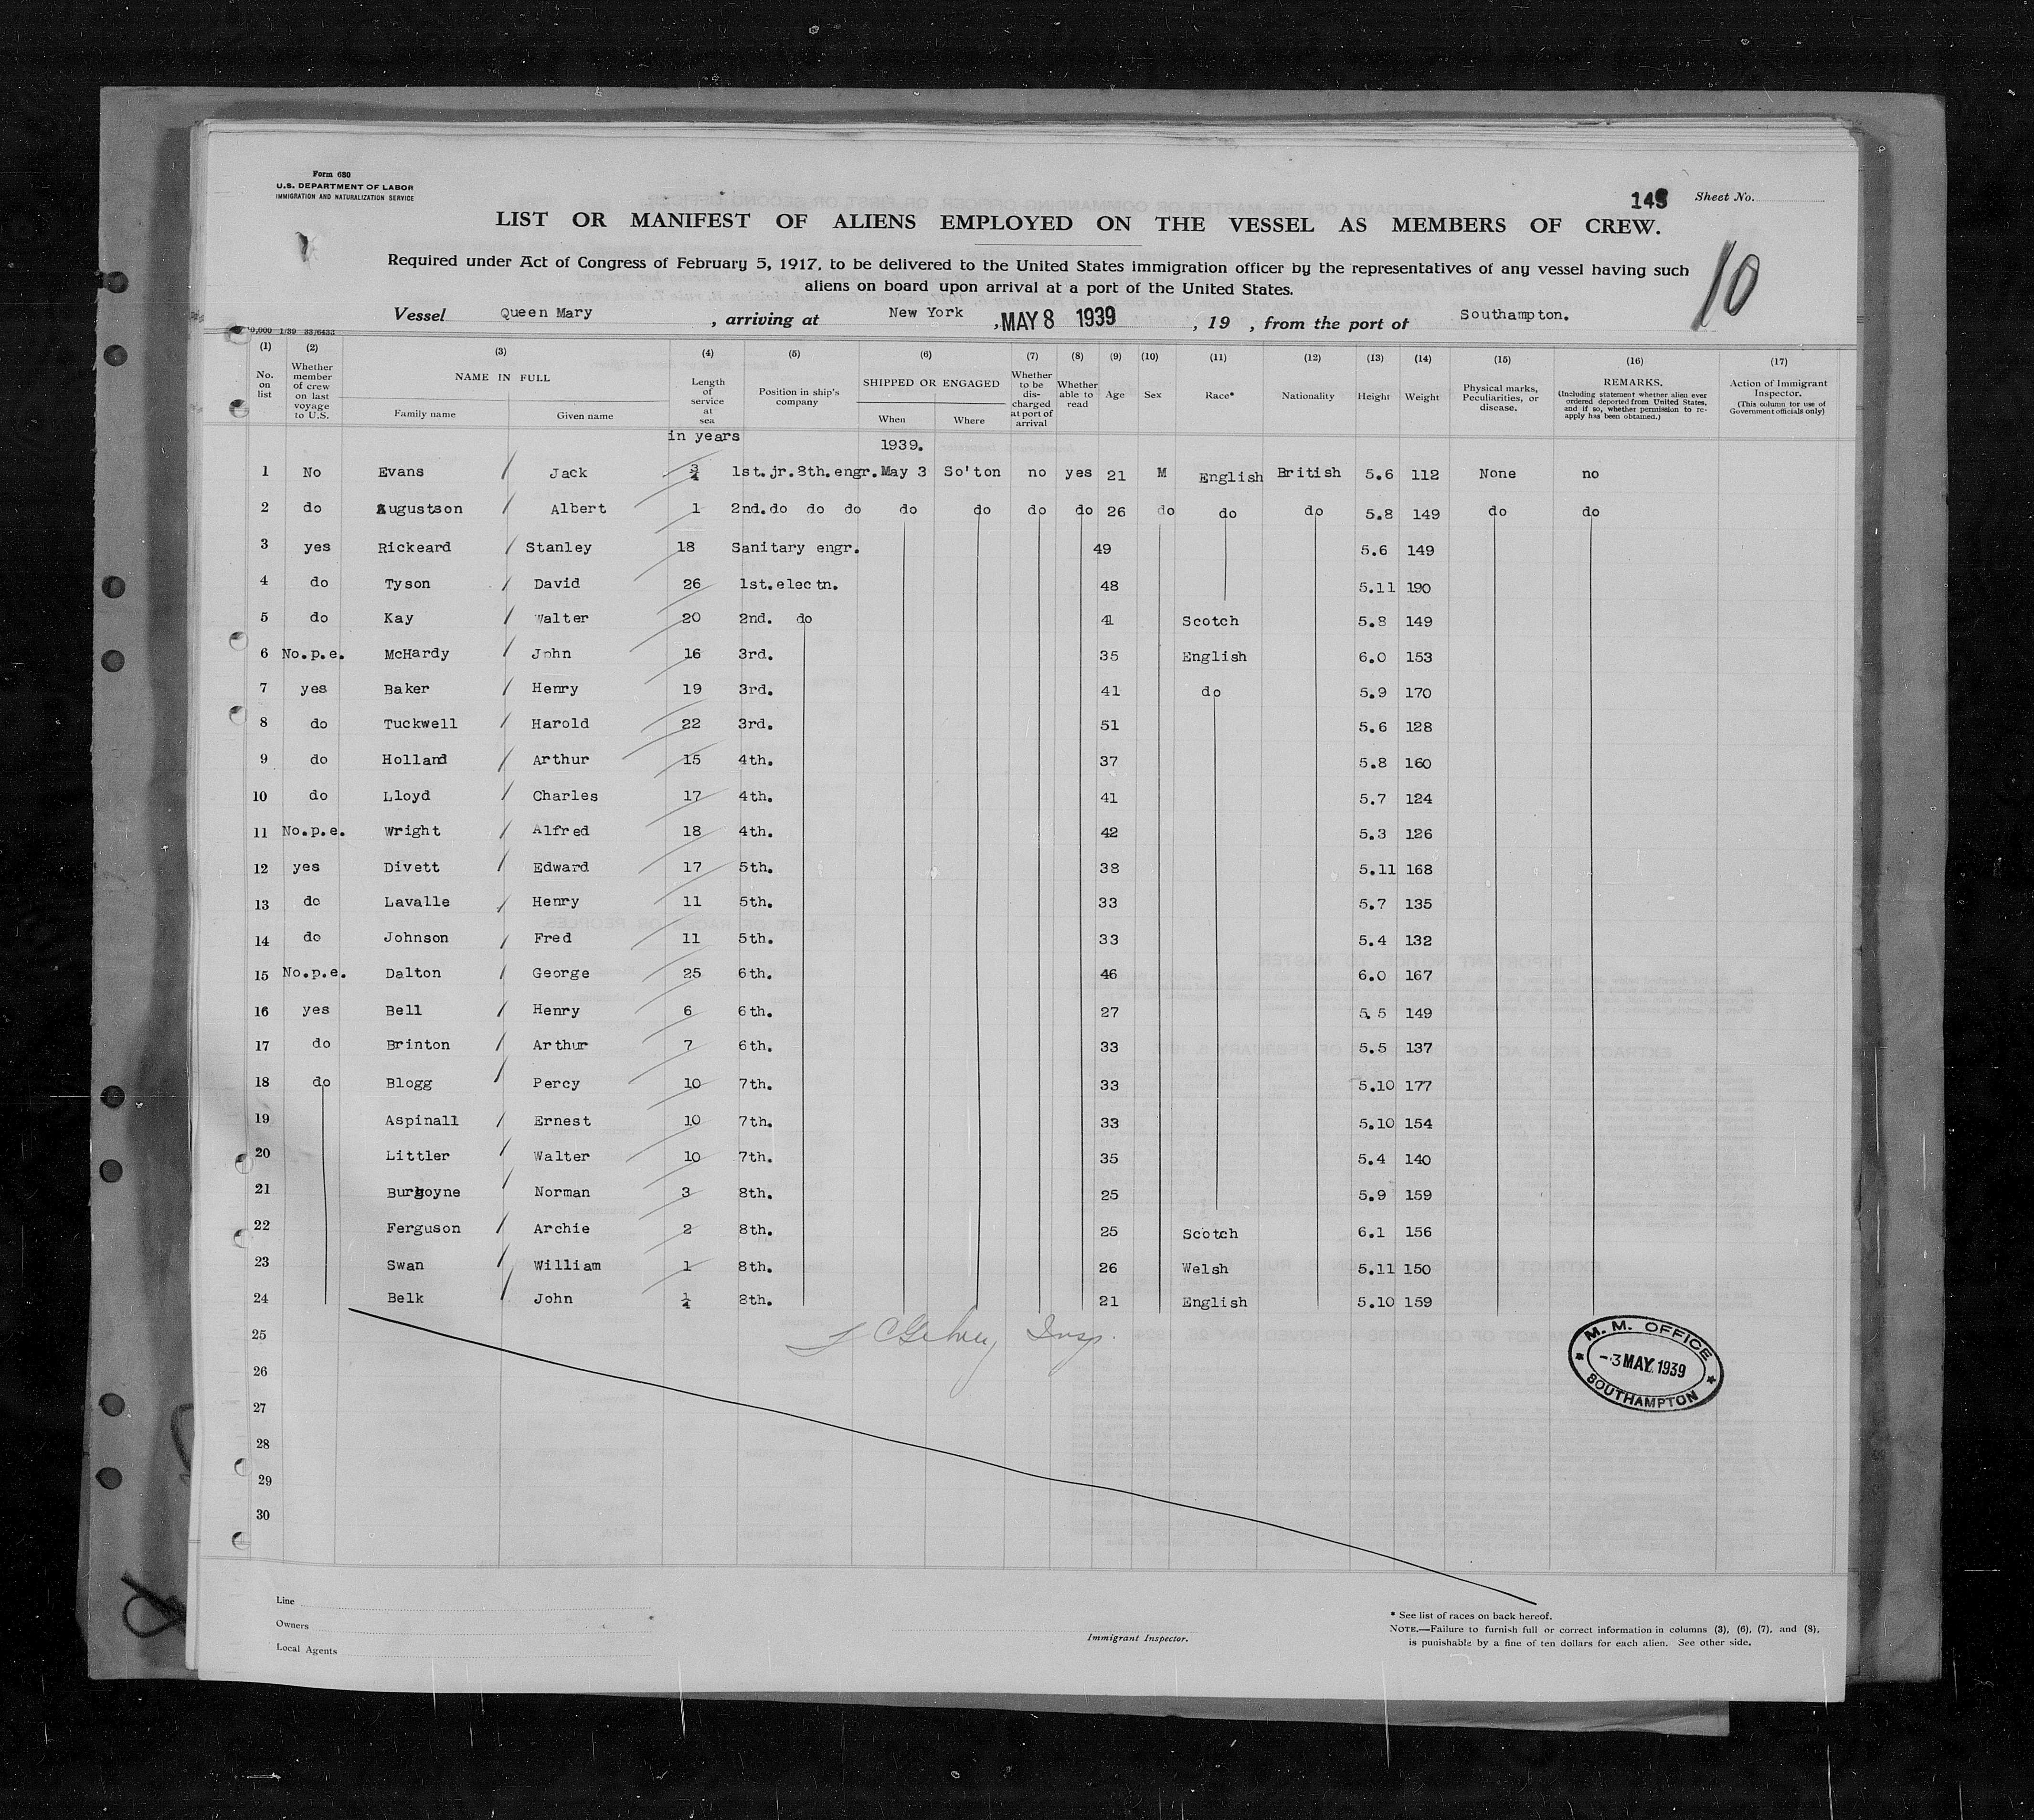 Form 680
U.S. DEPARTMENT OF LABOR
IMMIGRATION AND NATURALIZATION SERVICE
Sheet No.
LIST OR MANIFEST OF ALIENS EMPLOYED ON THE VESSEL AS MEMBERS OF CREW.
10
Required under Act of Congress of February 5, 1917, to be delivered to the United States immigration officer by the representatives of any vessel having such
aliens on board upon arrival at a port of the United States.
Vessel Queen Mary, arriving at New York, MAY 8 1939, 19 , from the port of Southampton.
(1) (2) (3) (4) (5) (6) (7) (8) (9) (10) (11) (12) (13) (14) (15) (16) (17)
No. on list
Whether member of crew on last voyage to U.S.
NAME IN FULL
Family name
Given name
Length of service at sea
Position in ship's company
SHIPPED OR ENGAGED
When
Where
Whether to be discharged at port of arrival
Whether able to read
Age
Sex
Race*
Nationality
Height
Weight
Physical marks, Peculiarities, or disease.
REMARKS.
(Including statement whether alien ever ordered deported from United States, and if so, whether permission to reapply has been obtained.)
Action of Immigrant Inspector.
(This column for use of Government officials only)
in years 1939.
1 No Evans / Jack 3/4 1st.jr.8th.engr. May 3 So'ton no yes 21 M English British 5.6 112 None no
2 do Augustson / Albert 1 2nd.do do do do do do do 26 do do do 5.8 149 do do
3 yes Rickeard / Stanley 18 Sanitary engr. 49 5.6 149
4 do Tyson / David 26 1st.electn. 48 5.11 190
5 do Kay / Walter 20 2nd. do 41 Scotch 5.8 149
6 No.p.e. McHardy / John 16 3rd. 35 English 6.0 153
7 yes Baker / Henry 19 3rd. 41 do 5.9 170
8 do Tuckwell / Harold 22 3rd. 51 5.6 128
9 do Holland / Arthur 15 4th. 37 5.8 160
10 do Lloyd / Charles 17 4th. 41 5.7 124
11 No.p.e. Wright / Alfred 18 4th. 42 5.3 126
12 yes Divett / Edward 17 5th. 38 5.11 168
13 do Lavalle / Henry 11 5th. 33 5.7 135
14 do Johnson / Fred 11 5th. 33 5.4 132
15 No.p.e. Dalton / George 25 6th. 46 6.0 167
16 yes Bell / Henry 6 6th. 27 5.5 149
17 do Brinton / Arthur 7 6th. 33 5.5 137
18 do Blogg / Percy 10 7th. 33 5.10 177
19 Aspinall / Ernest 10 7th. 33 5.10 154
20 Littler / Walter 10 7th. 35 5.4 140
21 Burgoyne / Norman 3 8th. 25 5.9 159
22 Ferguson / Archie 2 8th. 25 Scotch 6.1 156
23 Swan / William 1 8th. 26 Welsh 5.11 150
24 Belk / John 1/4 8th. 21 English 5.10 159
25
26
27
28
29
30
Insp.
M. M. OFFICE
-3 MAY 1939
SOUTHAMPTON
Line
Owners
Local Agents
Immigrant Inspector.
* See list of races on back hereof.
NOTE.—Failure to furnish full or correct information in columns (3), (6), (7), and (8),
is punishable by a fine of ten dollars for each alien. See other side.